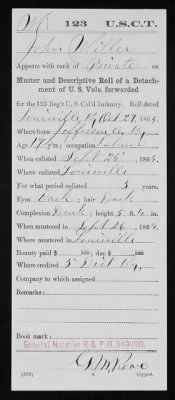 123 U.S.C.T.
John Miller
Appears with rank of Private on
Muster and Descriptive Roll of a Detachment of U. S. Vols. forwarded
for the 123 Reg't U. S. Col'd Infantry. Roll dated
Louisville Ky, Oct 27, 1864.
Where born Jefferson Co. Ky.
Age 17 y'rs; occupation Laborer
When enlisted Sept 26, 1864.
Where enlisted Louisville
For what period enlisted 3 years.
Eyes Dark; hair Dark
Complexion Dark; height 5 ft. in.
When mustered in Sept 26, 1864.
Where mustered in Louisville
Bounty paid $ 100; due $ 100
Where credited 5" Dist Ky.
Company to which assigned
Remarks:
Book mark:
General Notation R & P O
Copyist.